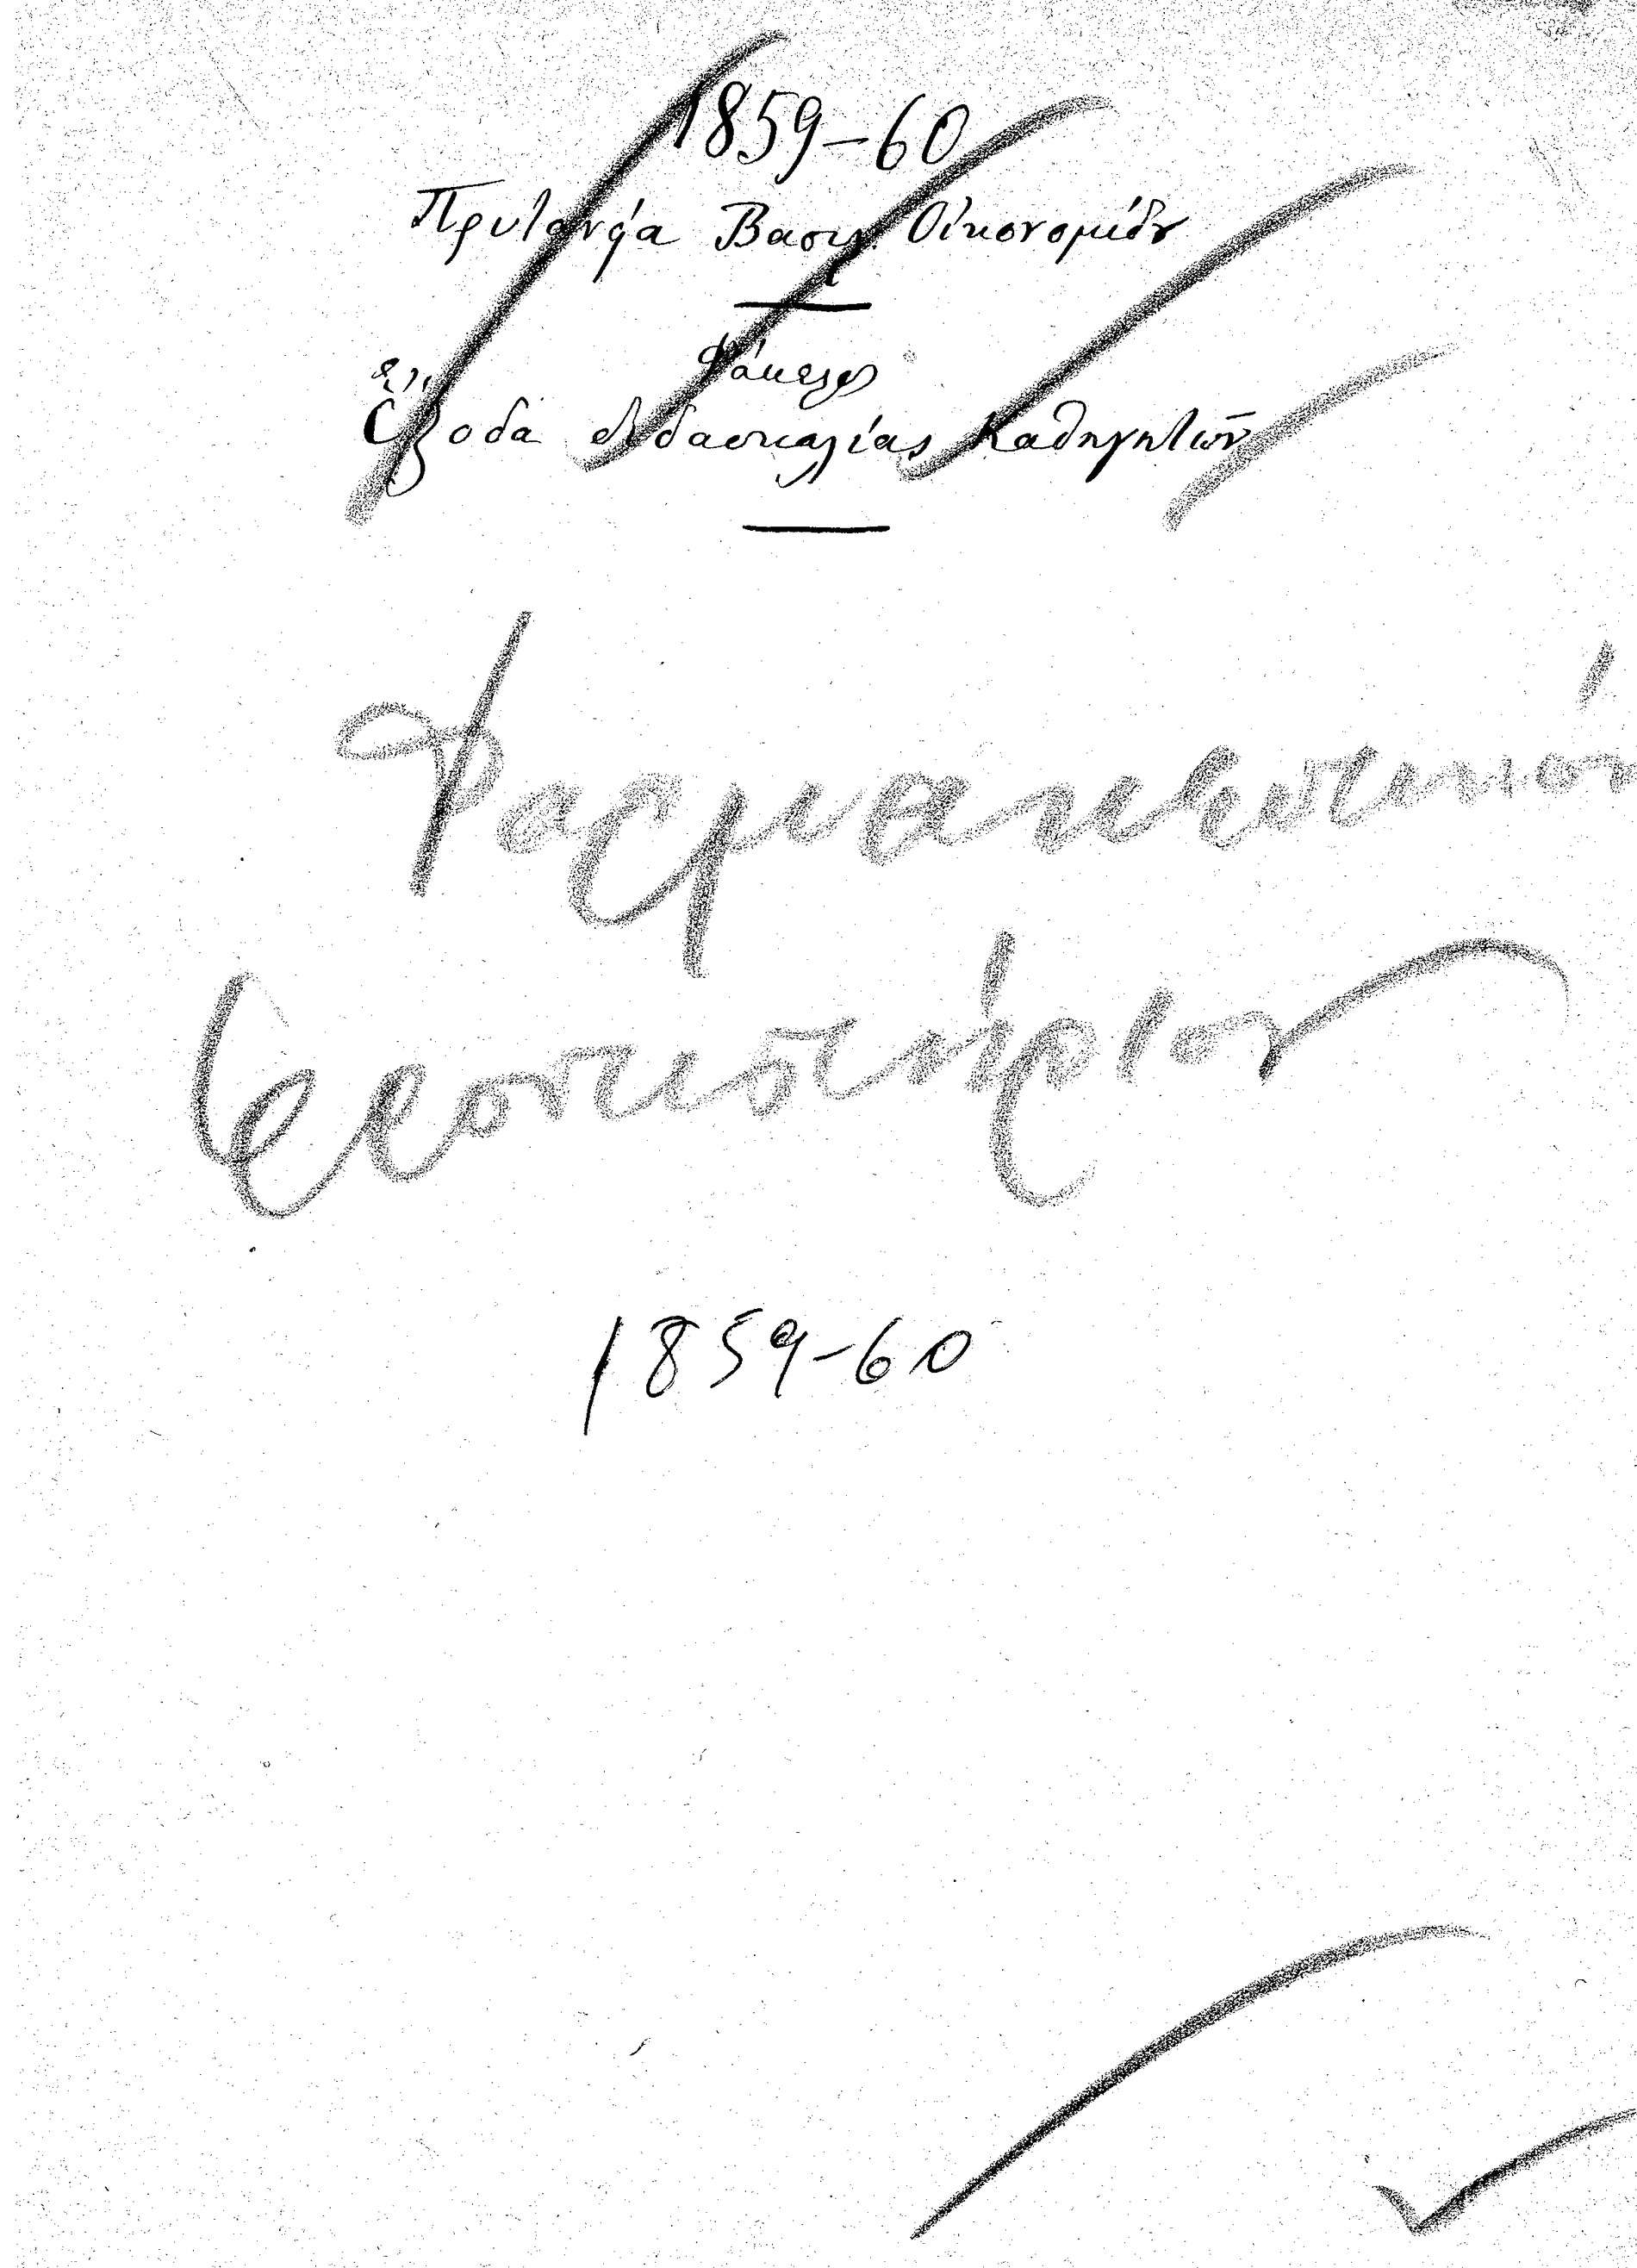 1859-60
Πρυτανεία Βασιλ. Οἰκονομίδου
Φάκελος
Ἔξοδα διδασκαλίας Καθηγητῶν
Φαρμακευτικόν
φροντιστήριον
1859-60